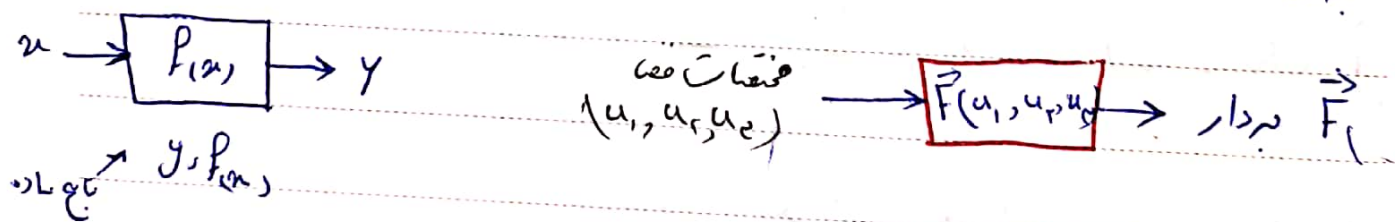 x → f(x) → y
y = f(x)
تابع ساده
مختصات فضا
(u₁, u₂, u₃) → F⃗(u₁, u₂, u₃) → بردار F⃗